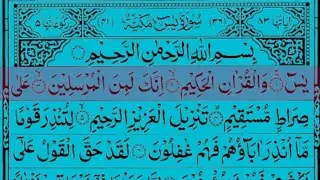 اٰیَاتُهَا ٨٣ (٣٦) سُوْرَةُ یٰسٓ مَكِّیَّةٌ (٤١) رُكُوْعَاتُهَا ٥
بِسْمِ اللهِ الرَّحْمٰنِ الرَّحِیْمِ
یٰسٓ ۚ وَالْقُرْاٰنِ الْحَكِیْمِ ۙ اِنَّكَ لَمِنَ الْمُرْسَلِیْنَ ۙ عَلٰی
صِرَاطٍ مُّسْتَقِیْمٍ ؕ تَنْزِیْلَ الْعَزِیْزِ الرَّحِیْمِ ۙ لِتُنْذِرَ قَوْمًا
مَّاۤ اُنْذِرَ اٰبَآؤُهُمْ فَهُمْ غٰفِلُوْنَ لَقَدْ حَقَّ الْقَوْلُ عَلٰۤی